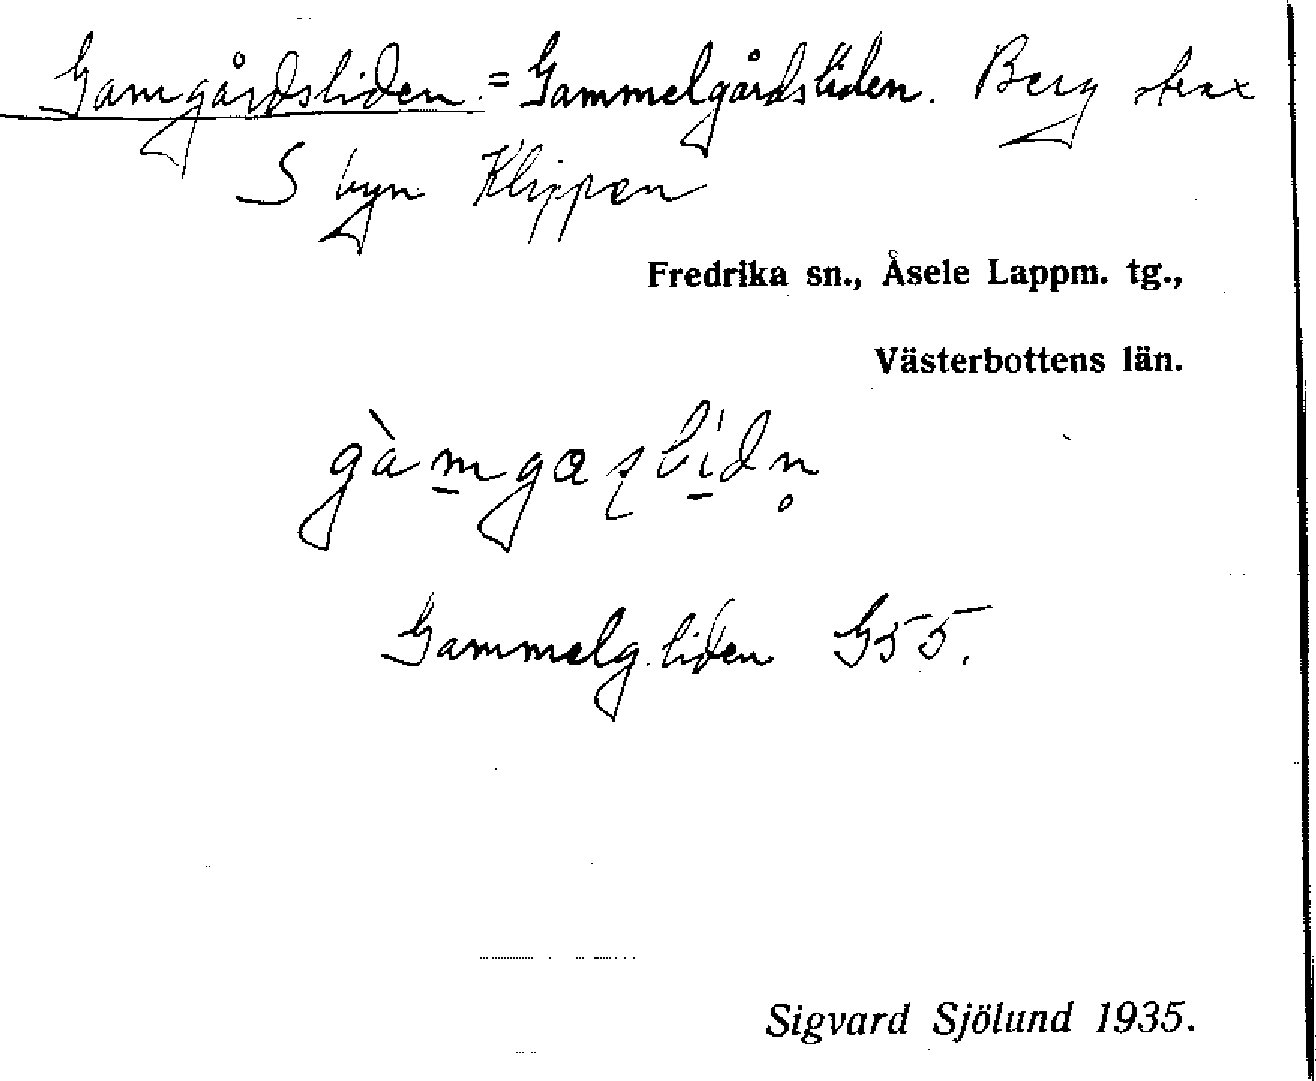 Gamgårdsliden = Gammelgårdsliden. Berg strax
S byn Klippen
Fredrika sn., Åsele Lappm. tg.,
Västerbottens län.
gàm̲gaʂli̲dn̥
Gammelg.liden G55.
Sigvard Sjölund 1935.